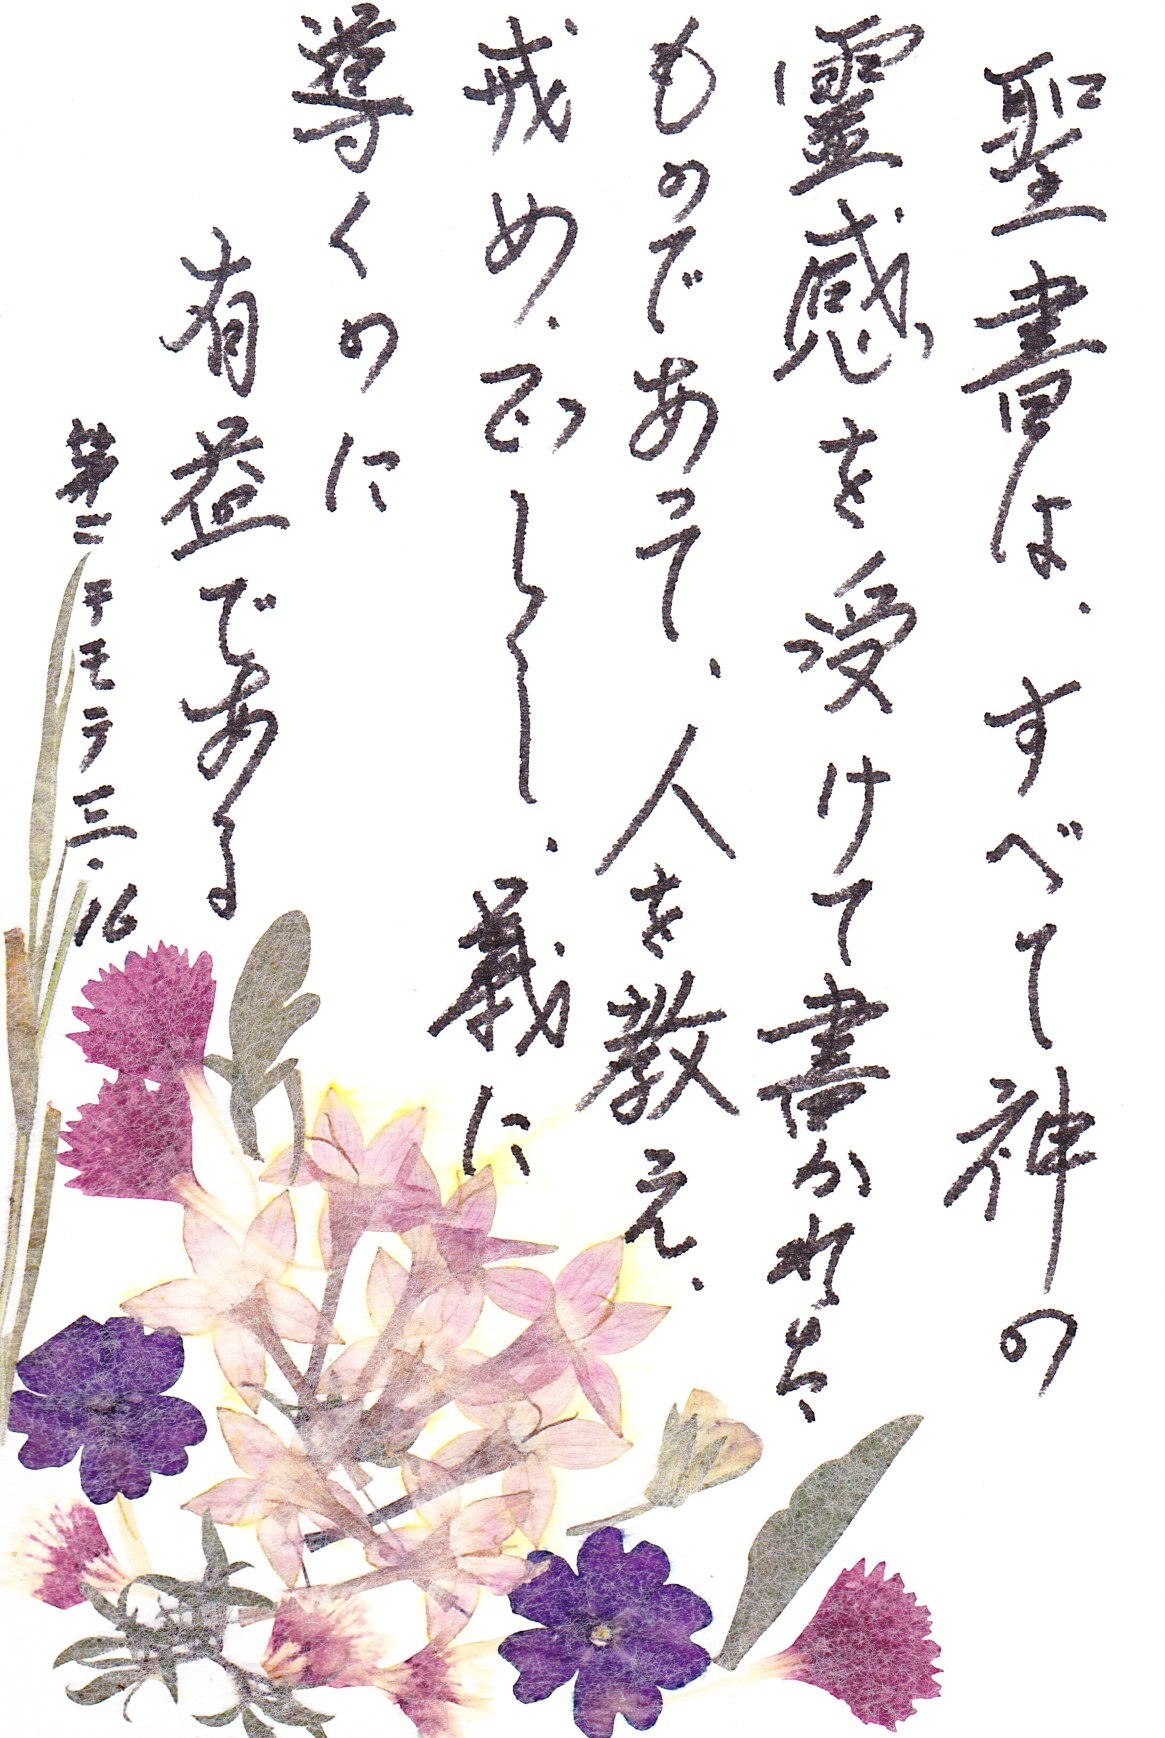 聖書は、すべて神の
霊感を受けて書かれた
ものであって、人を教え、
戒め、正しくし、義に
導くのに
有益である
第二テモテ三・16